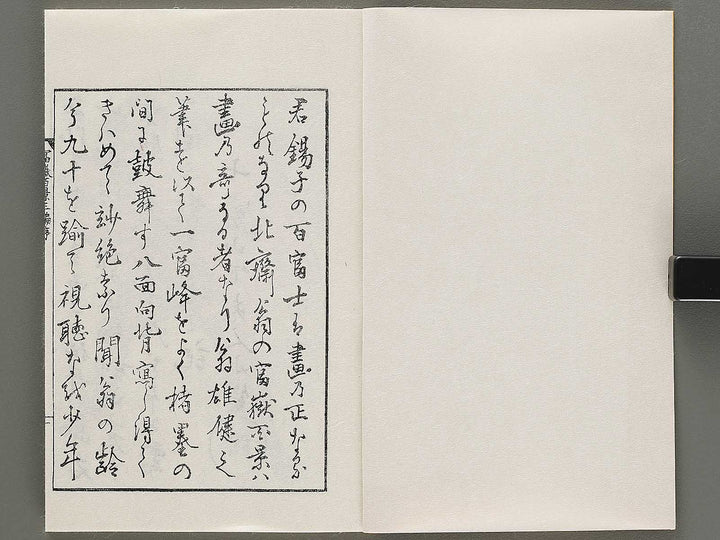 君錫子の百富士は畫乃正なる
なり北齋翁の富嶽百景ハ
畫乃奇なる者なり翁雄健之
筆を以て一富峰をよく楮墨の
間に鼓舞す八面向背寫し得て
きハめて妙絶なり聞翁の齡
今九十を踰て視聽なほ少年
富嶽百景三編序